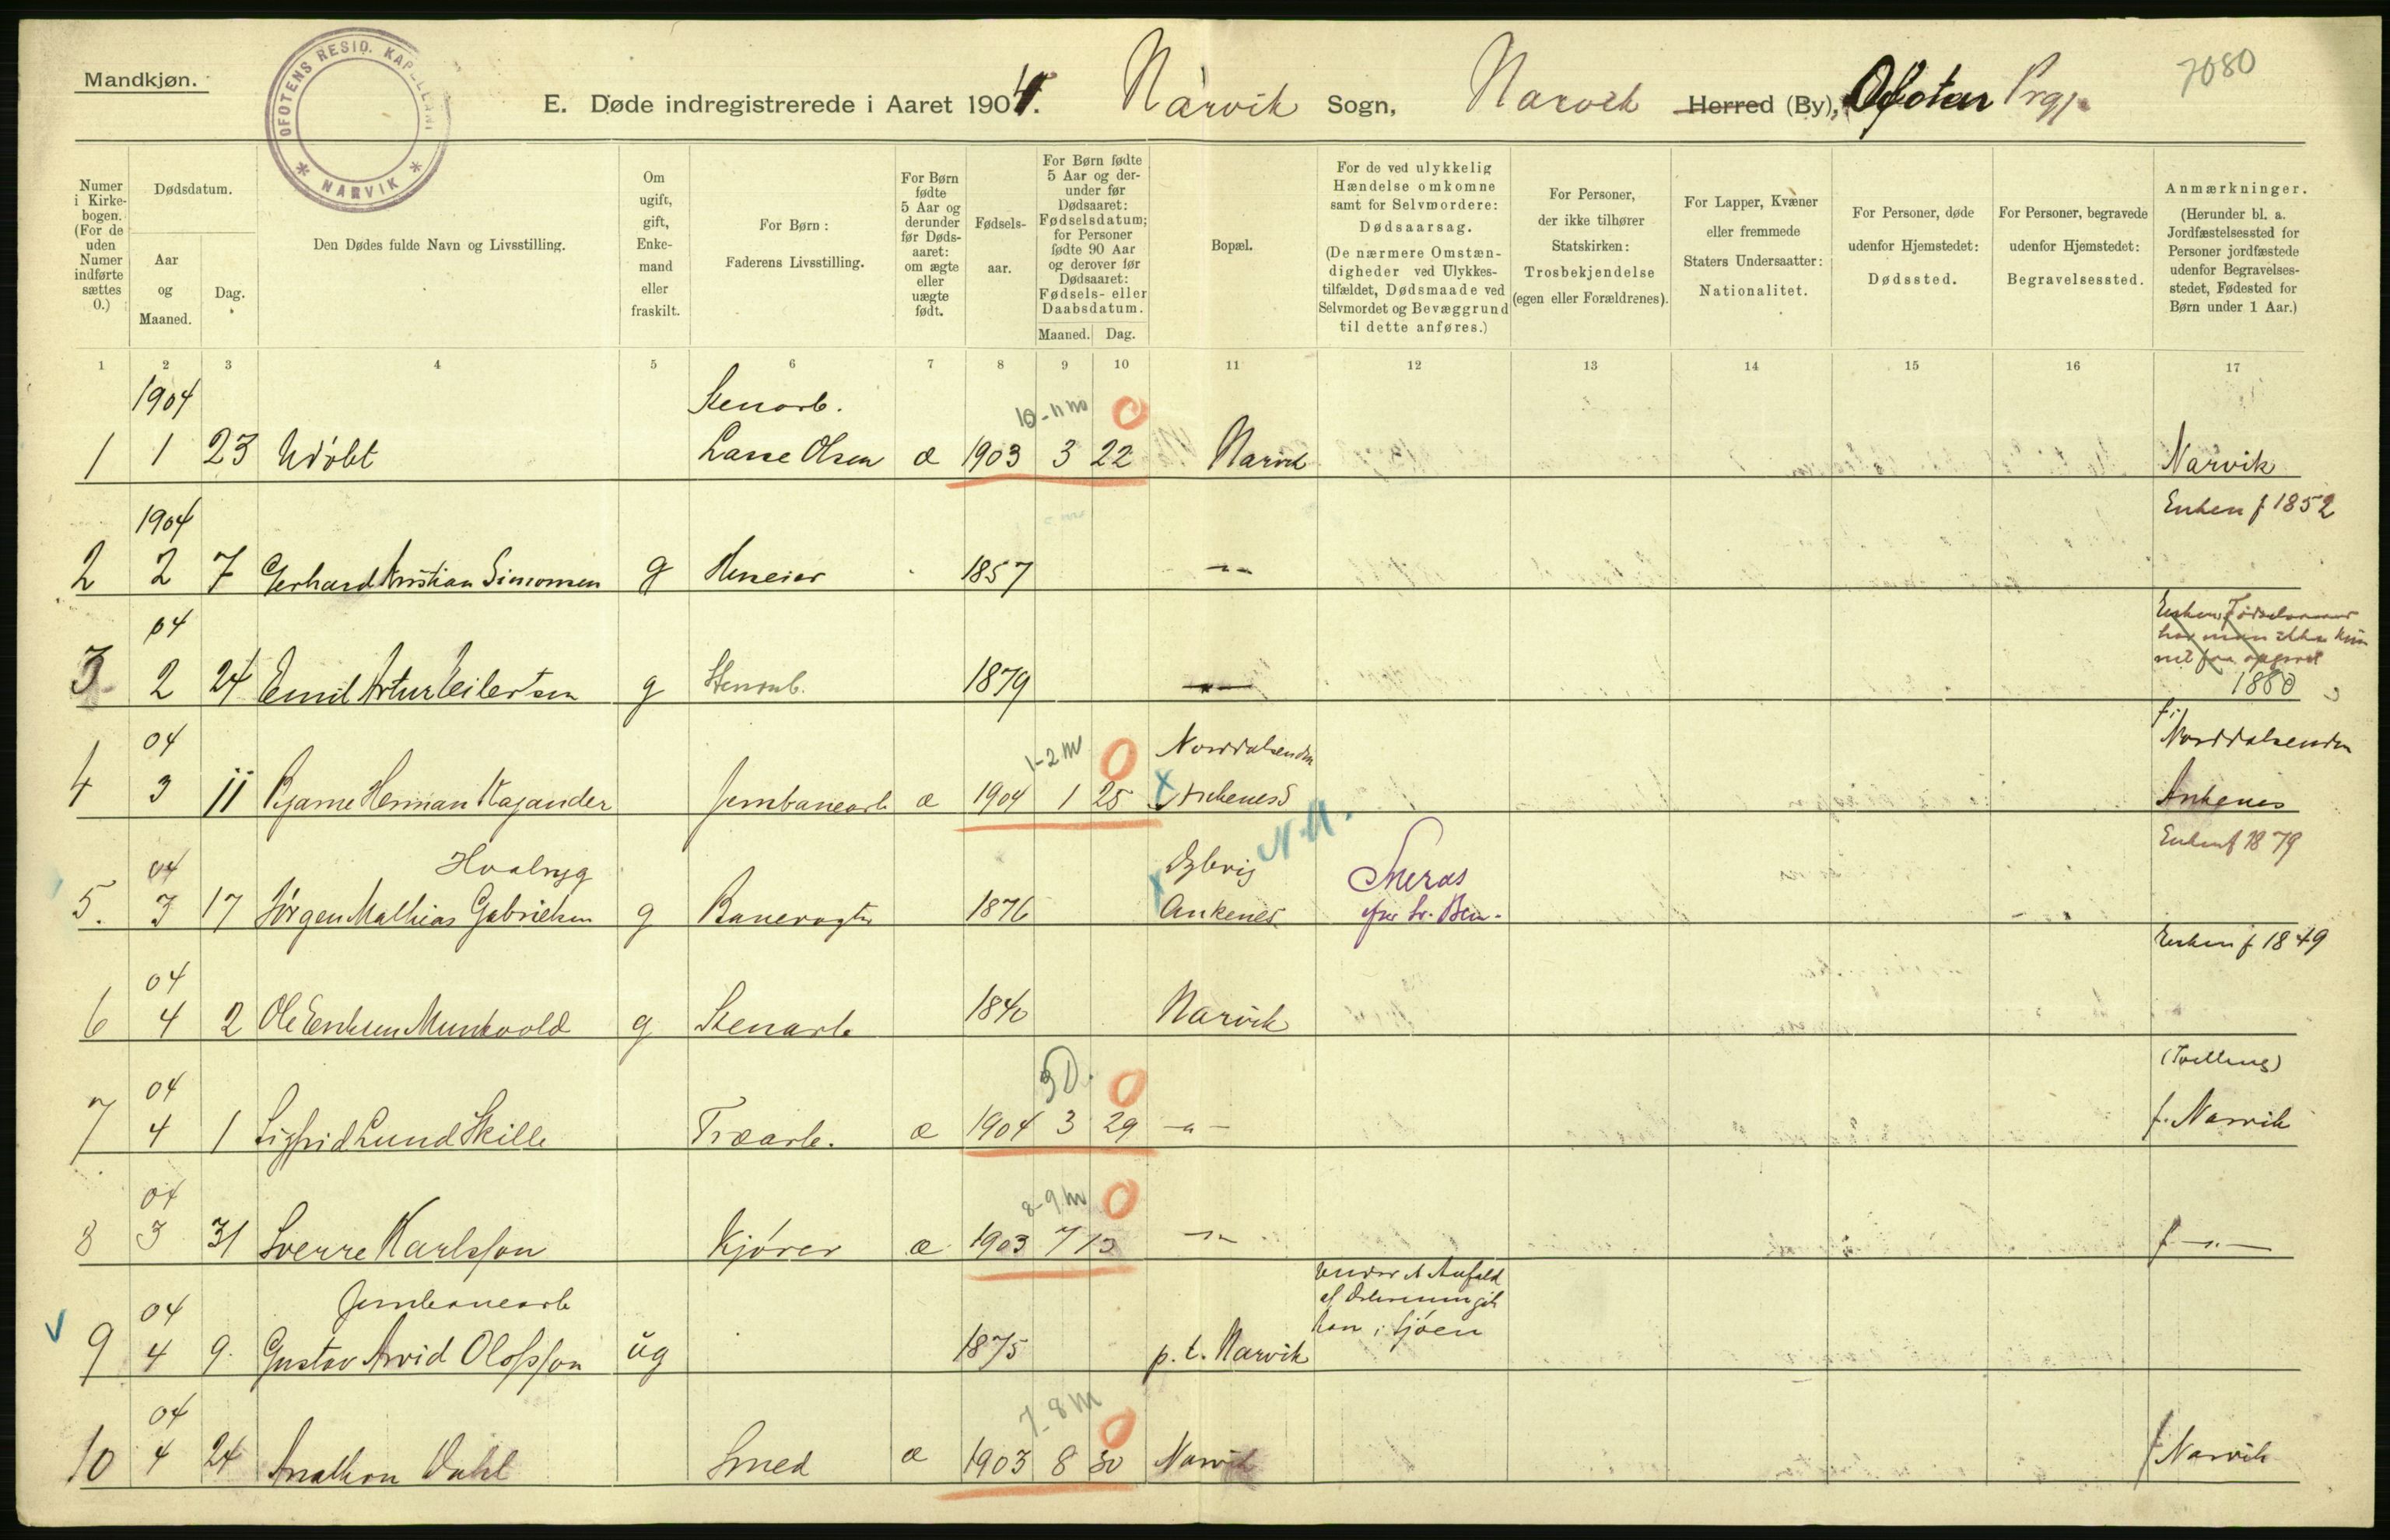 Mandkjøn.
OFOTENS RESID. KAPELLANI * NARVIK *
E. Døde indregistrerede i Aaret 1904. Narvik Sogn, Narvik Herred (By), Ofoten Prgj.
7080
Numer i Kirkebogen. (For de uden Numer indførte sættes 0.)
Dødsdatum.
Aar og Maaned.
Dag.
Den Dødes fulde Navn og Livsstilling.
Om ugift, gift, Enkemand eller fraskilt.
For Børn: Faderens Livsstilling.
For Børn fødte 5 Aar og derunder før Dødsaaret: om ægte eller uægte født.
Fødselsaar.
For Børn fødte 5 Aar og derunder før Dødsaaret: Fødselsdatum; for Personer fødte 90 Aar og derover før Dødsaaret: Fødsels- eller Daabsdatum.
Maaned. Dag.
Bopæl.
For de ved ulykkelig Hændelse omkomne samt for Selvmordere: Dødsaarsag. (De nærmere Omstændigheder ved Ulykkestilfældet, Dødsmaade ved Selvmordet og Bevæggrund til dette anføres.)
For Personer, der ikke tilhører Statskirken: Trosbekjendelse (egen eller Forældrenes).
For Lapper, Kvæner eller fremmede Staters Undersaatter: Nationalitet.
For Personer, døde udenfor Hjemstedet: Dødssted.
For Personer, begravede udenfor Hjemstedet: Begravelsessted.
Anmærkninger. (Herunder bl. a. Jordfæstelsessted for Personer jordfæstede udenfor Begravelsesstedet, Fødested for Børn under 1 Aar.)
1 2 3 4 5 6 7 8 9 10 11 12 13 14 15 16 17
1904 Stenarb. 10-11 m 0
1 1 23 Udøbt Lasse Olsen æ 1903 3 22 Narvik Narvik
1904 Enken f 1852
2 2 7 Gerhard Kristian Simonsen g Huseier 1857 —"—
04 Enkens Fødselsaar har man ikke kunnet faa opgivet
3 2 24 Emil Artur Eilertsen g Stenarb. 1879 —"— 1880
04 1-2 m 0 Norddalsenden f. Norddalsenden
4 3 11 Bjarne Herman Kajander Jernbanearb æ 1904 1 25 Ankenes Ankenes
04 Hvalryg N.A. Enken f 1879
5. 3 17 Jørgen Mathias Gabrielsen g Banevogter 1876 Ankenes Sneras
04 Enken f 1849
6 4 2 Ole Eriksen Munkvold g Stenarb 1840 Narvik
04 3 D. 0 (Tvilling)
7 4 1 Sigfrid Lund Skille Træarb. æ 1904 3 29 —"— f. Narvik
04 8-9 m 0
8 3 31 Sverre Karlsson Kjører æ 1903 7 13 —"— f —"—
04 Jernbanearb
9 4 9. Gustav Arvid Olofsson ug 1875 p. t. Narvik han i Sjøen
04 7-8 m 0
10 4 24 Anathon Dahl Smed æ 1903 8 30 Narvik f Narvik